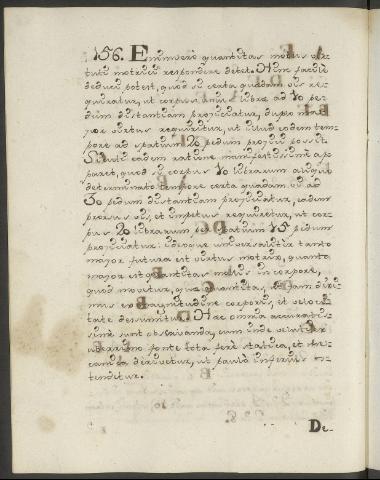 156. Enimvero quantitas motus vir-
tuti motrici respondere debet. Hinc facile
deduci potest, quod si certa quadam vis re-
quiratur, ut corpus unius libræ ad 10 pe-
dum distantiam projiciatur, duplo ma-
jor virtus requiritur, ut illud eodem tem-
pore ad spatium 20 pedum projici possit.
Sicuti eadem ratione manifestissimè ap-
paret, quod si corpus 10 librarum aliquo
determinato tempore certa quadam vi ad
30 pedum distantiam projiciatur, eadem
prorsus vis, et impetus requiretur, ut cor-
pus 20 librarum per spatium 15 pedum
projiciatur: ideoque universaliter tanto
major futura est virtus motrix, quanto
major est quantitas motus in corpore,
quod movetur, quæ quantitas, ut jam dixi-
mus ex magnitudine corporis, et veloci-
tate desumitur. Hæc omnia accuratis-
simè sunt observanda, cum inde veluti ex
uberrimo fonte tota ferè statica, et Me-
canica derivetur, ut paulò inferius os-
tendetur.
De-